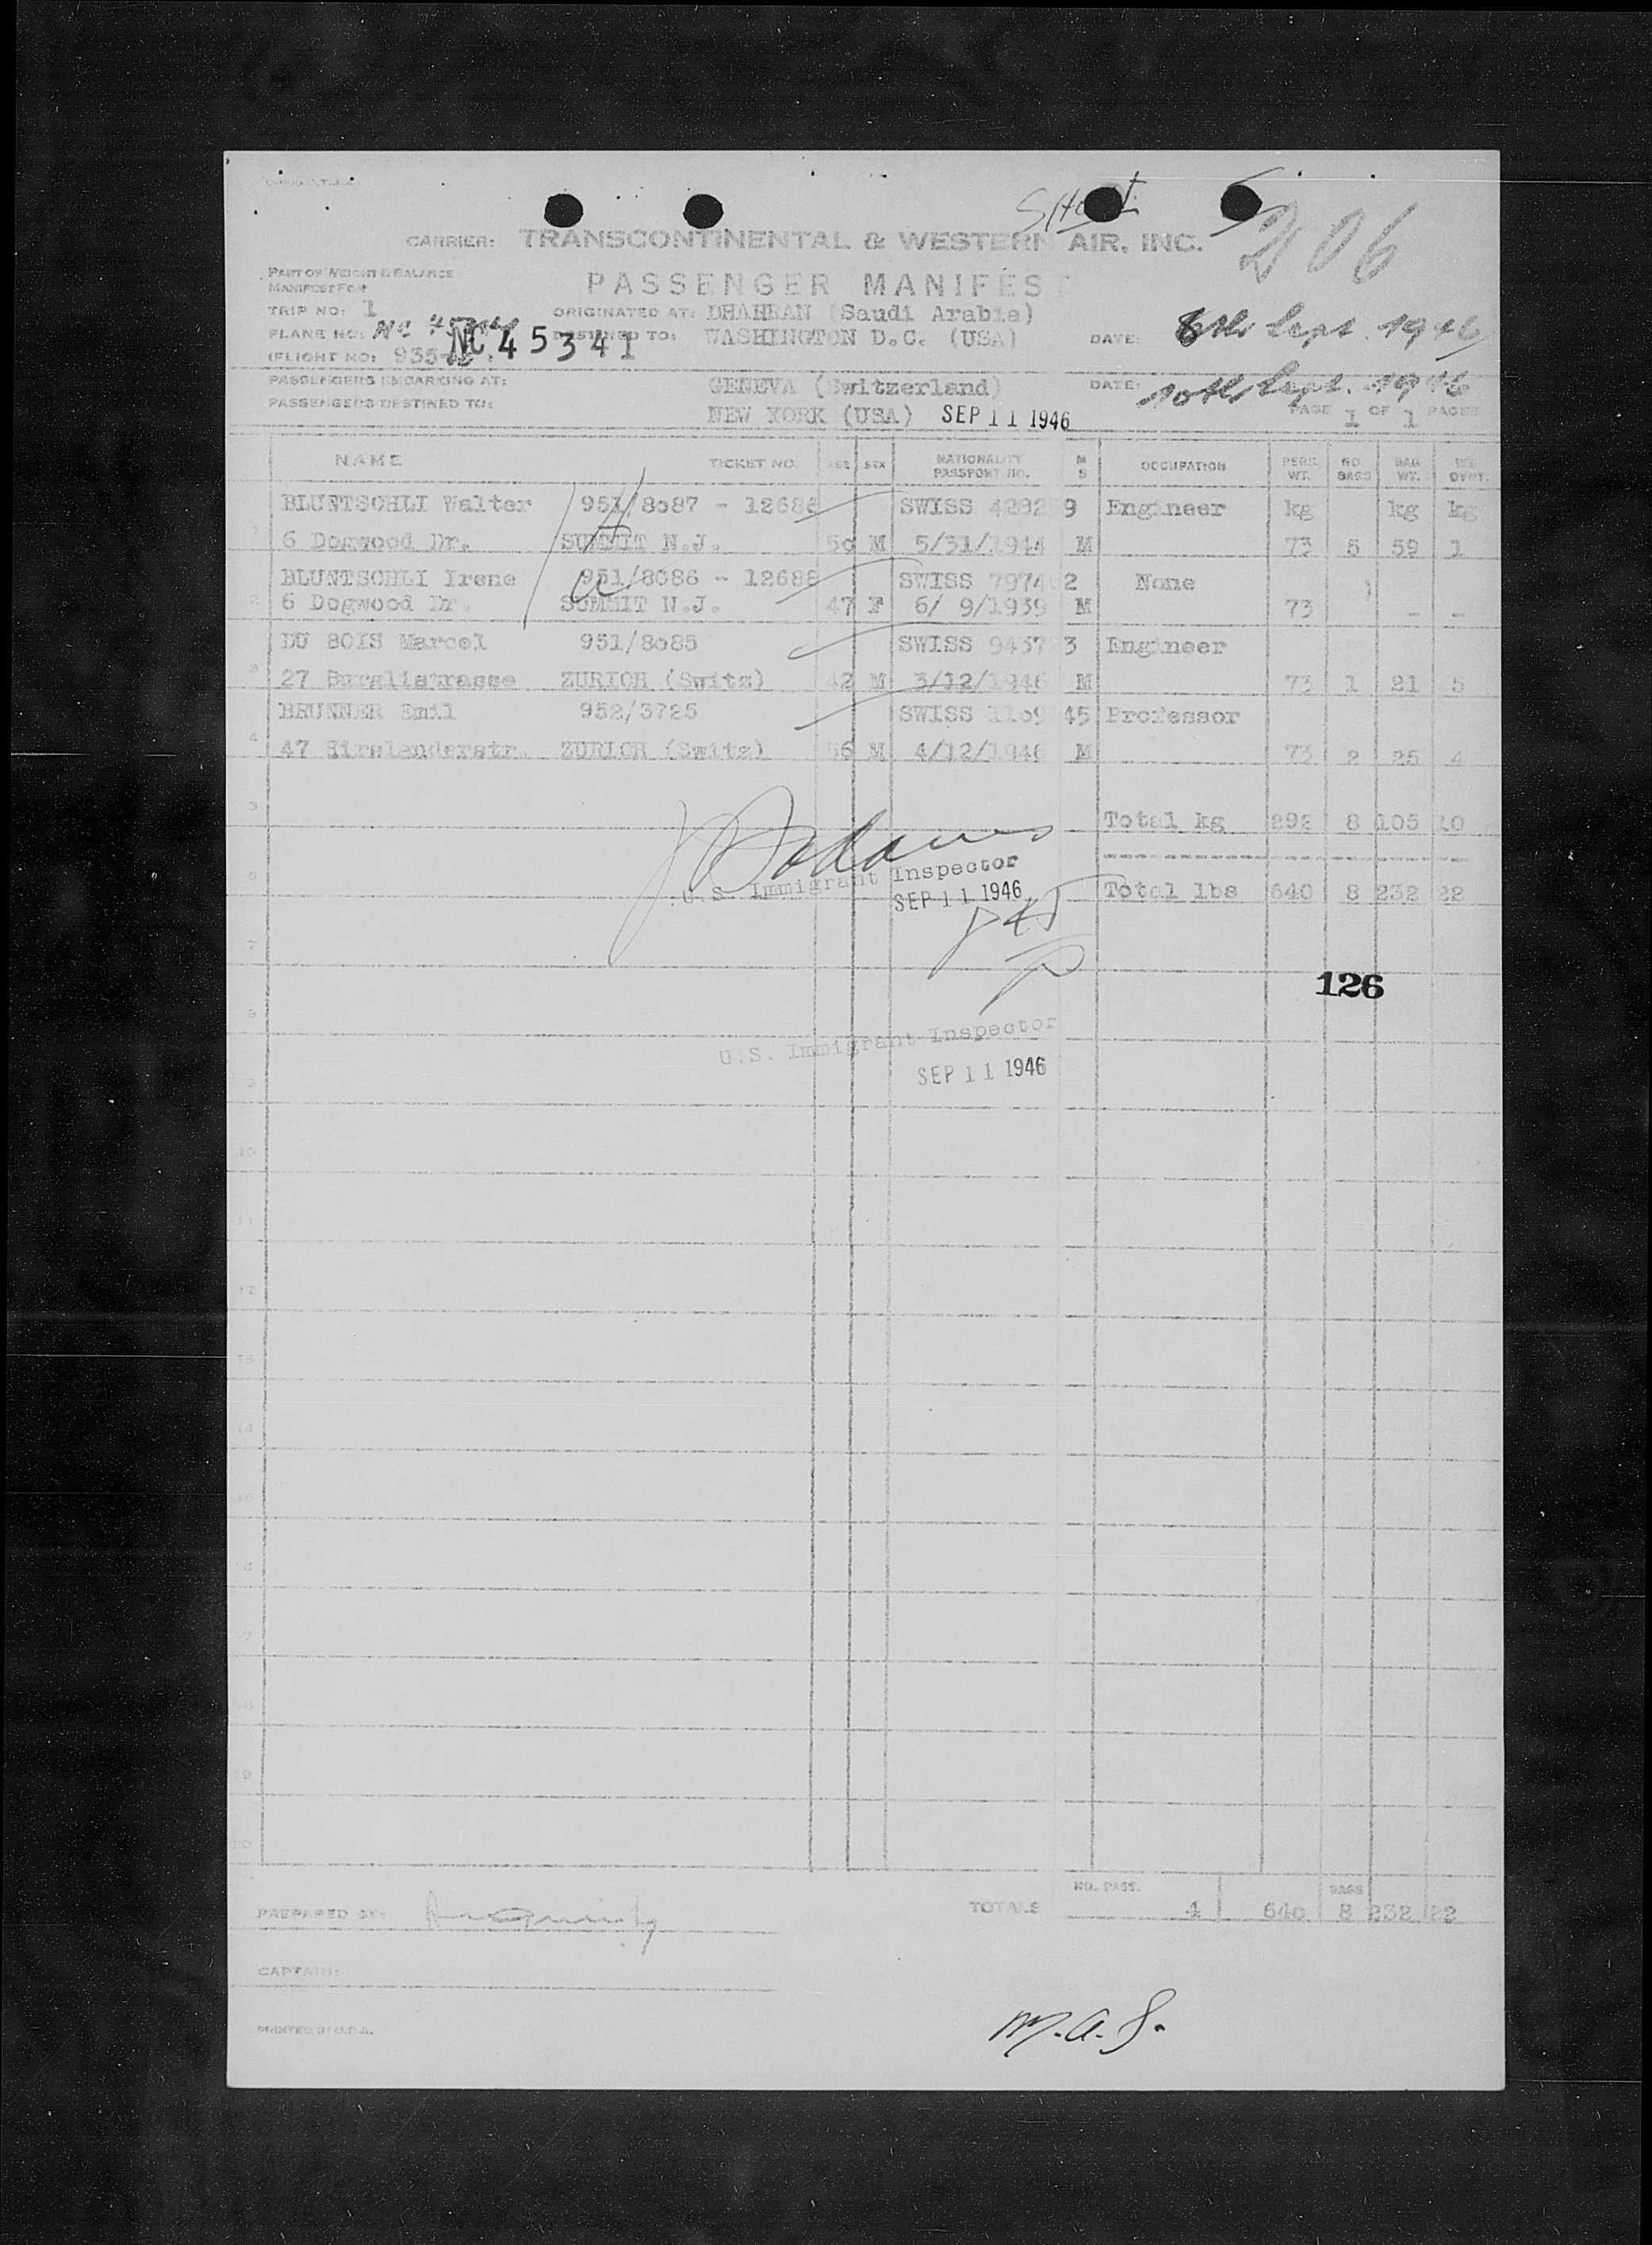 SHOT 5
206
CARRIER: TRANSCONTINENTAL & WESTERN AIR, INC.
PART OF WEIGHT & BALANCE
MANIFEST FOR
PASSENGER MANIFEST
TRIP NO: 1 ORIGINATED AT: DHAHRAN (Saudi Arabia)
PLANE NO: NC45341 DESTINED TO: WASHINGTON D.C. (USA) DATE: 8th Sept. 1946
(FLIGHT NO: 935
PASSENGERS EMBARKING AT: GENEVA (Switzerland) DATE: 10th Sept. 1946
PASSENGERS DESTINED TO: NEW YORK (USA) SEP 11 1946 PAGE 1 OF 1 PAGES
NAME TICKET NO. AGE SEX NATIONALITY PASSPORT NO. M S OCCUPATION PERS. WT. NO. BAGS BAG. WT.
BLUNTSCHLI Walter 951/8087 - 12686 SWISS 4282 9 Engineer kg kg kg
1 6 Dogwood Dr. SUMMIT N.J. 50 M 5/31/1944 M 73 5 59 1
BLUNTSCHLI Irene 951/8086 - 12688 SWISS 7974 2 None
2 6 Dogwood Dr. SUMMIT N.J. 47 F 6/ 9/1939 M 73 - -
DU BOIS Marcel 951/8085 SWISS 9437 3 Engineer
3 27 Burglistrasse ZURICH (Switz) 42 M 3/12/1946 M 73 1 21 5
BRUNNER Emil 952/3725 SWISS 1109 45 Professor
4 47 ZURICH (Switz) 56 M 4/12/1946 M 73 2 25 4
5 Total kg 292 8 105 10
U.S. Immigrant Inspector
6 SEP 11 1946 Total lbs 640 8 232 22
7
126
8
U.S. Immigrant Inspector
9 SEP 11 1946
10
11
12
13
14
15
16
17
18
19
20
NO. PASS. BAGS
PREPARED BY: TOTALS 4 640 8 232 22
CAPTAIN:
PRINTED IN U.S.A.
M.A.S.